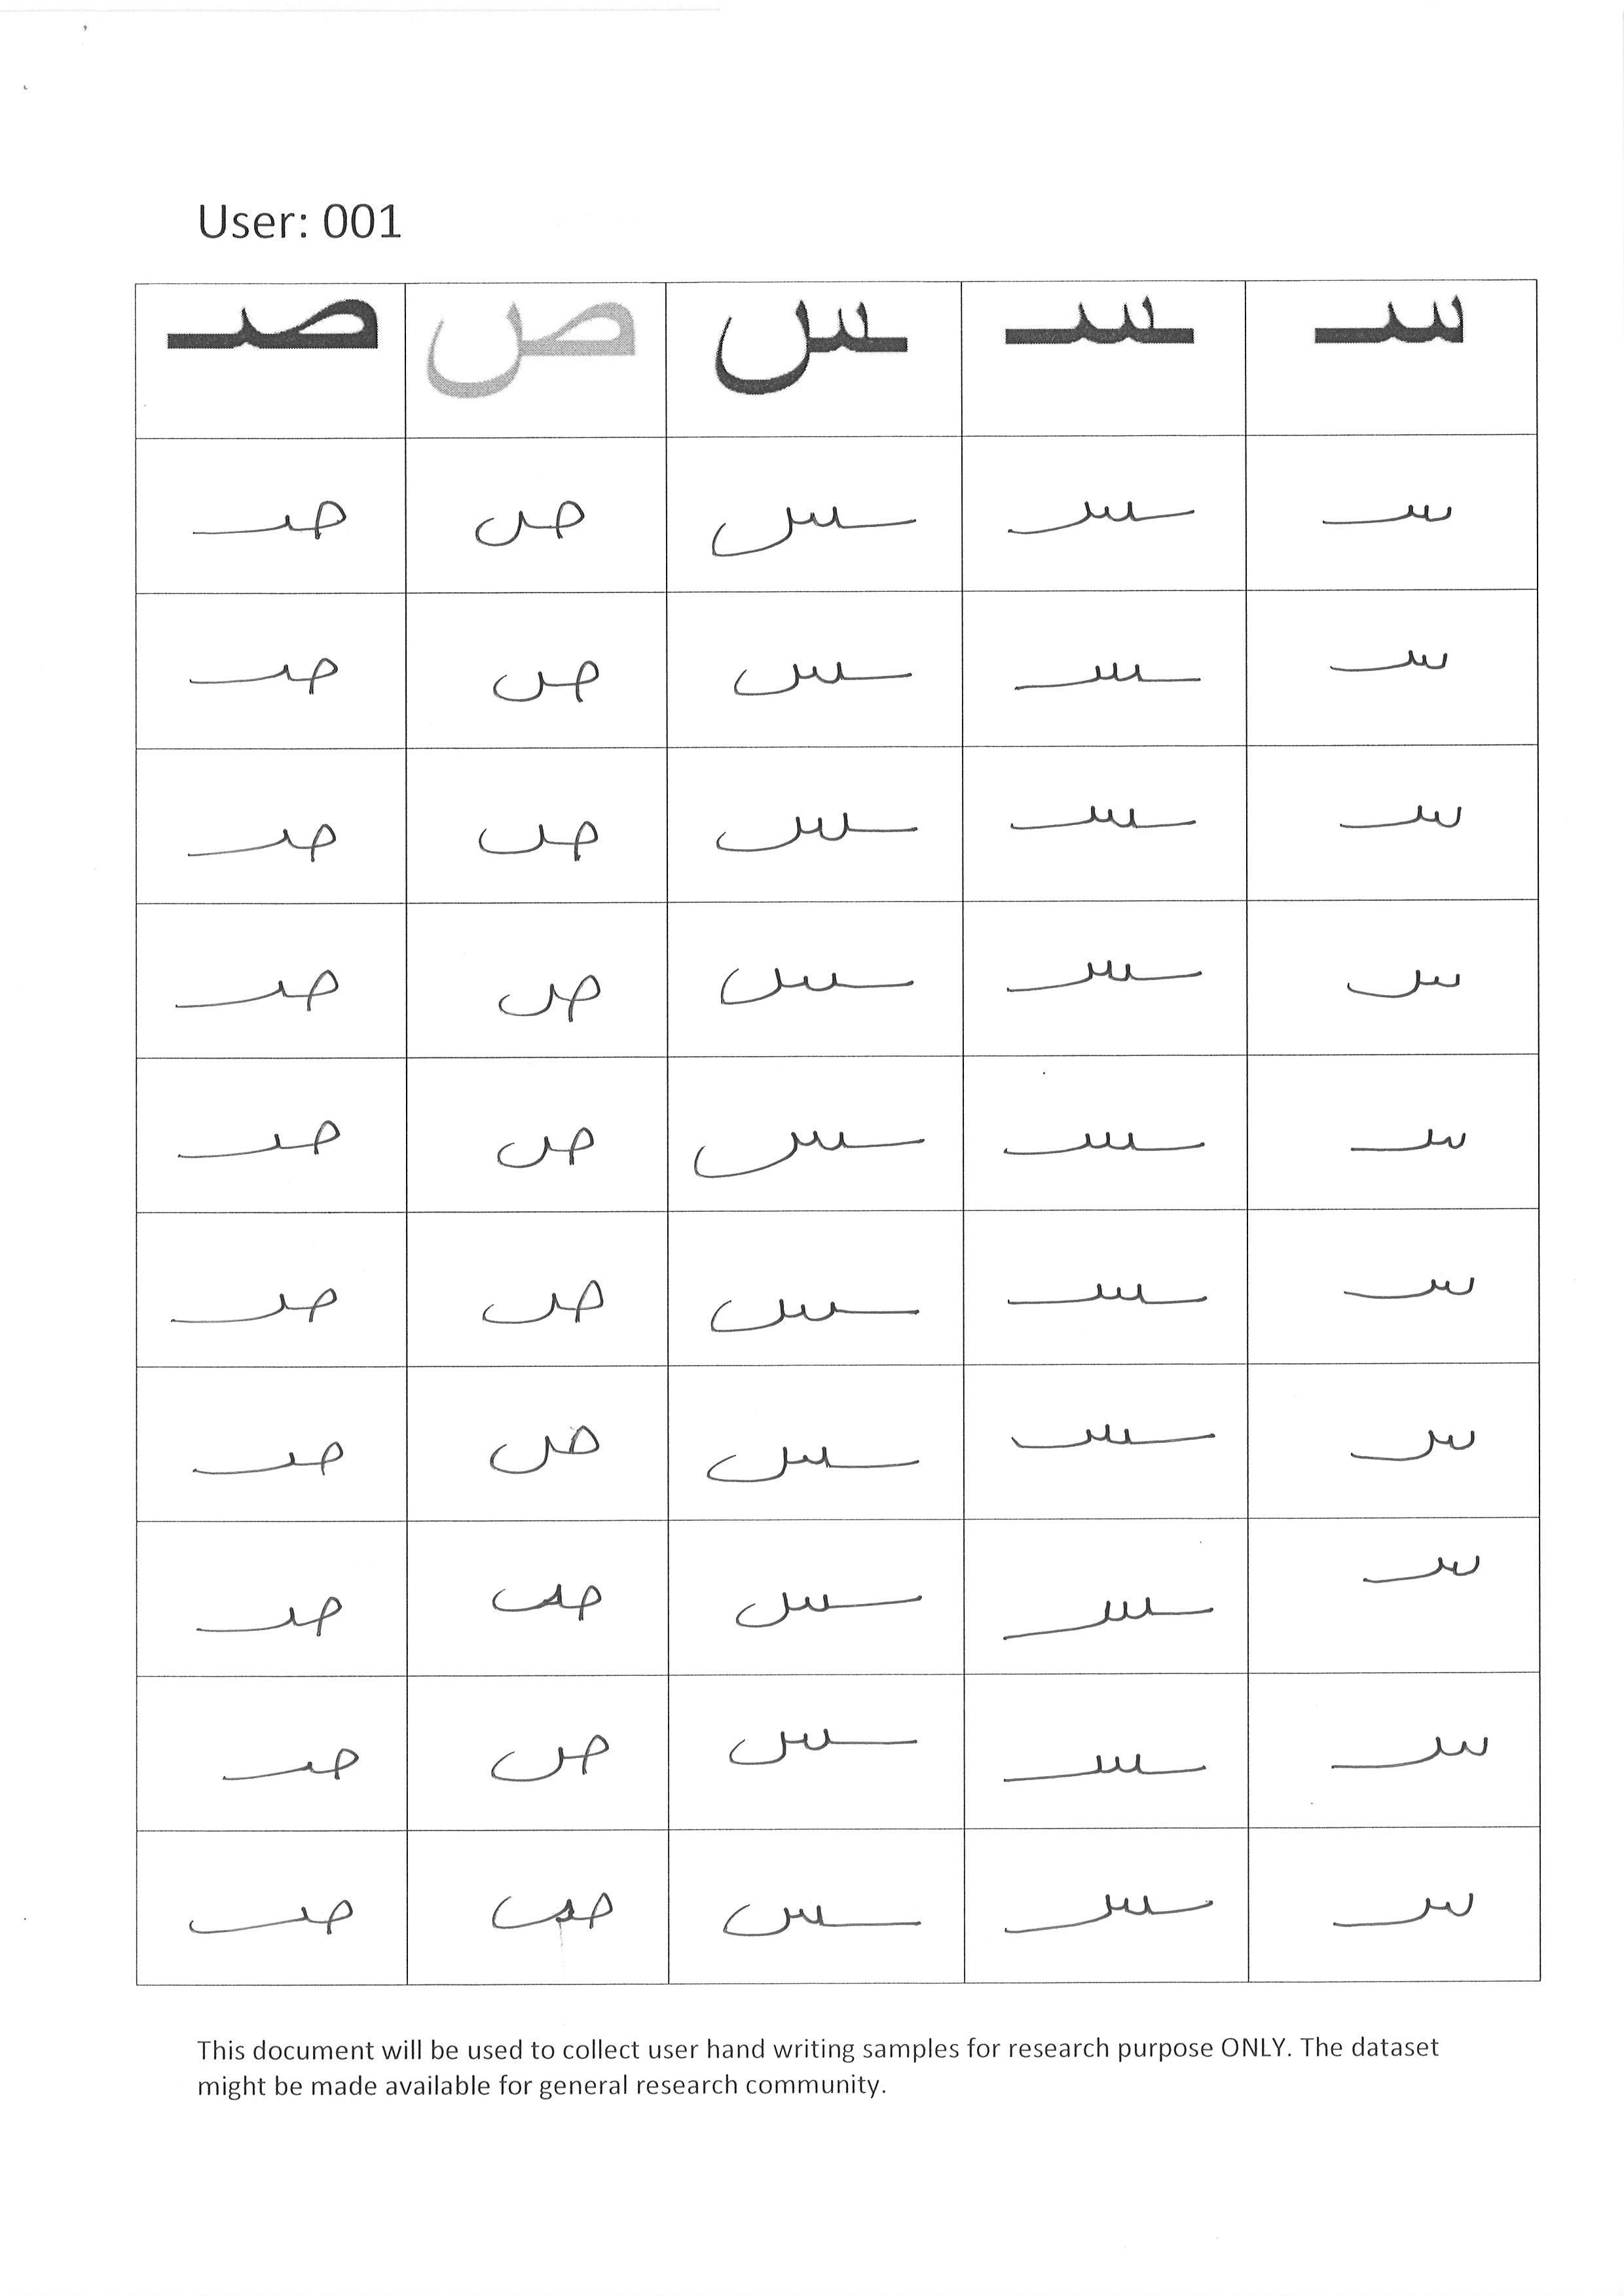 User: 001
سـ ـسـ ـس ص صـ
سـ ـسـ ـس ص صـ
سـ ـسـ ـس ص صـ
سـ ـسـ ـس ص صـ
سـ ـسـ ـس ص صـ
سـ ـسـ ـس ص صـ
سـ ـسـ ـس ص صـ
سـ ـسـ ـس ص صـ
سـ ـسـ ـس ص صـ
سـ ـسـ ـس ص صـ
سـ ـسـ ـس ص صـ
This document will be used to collect user hand writing samples for research purpose ONLY. The dataset
might be made available for general research community.